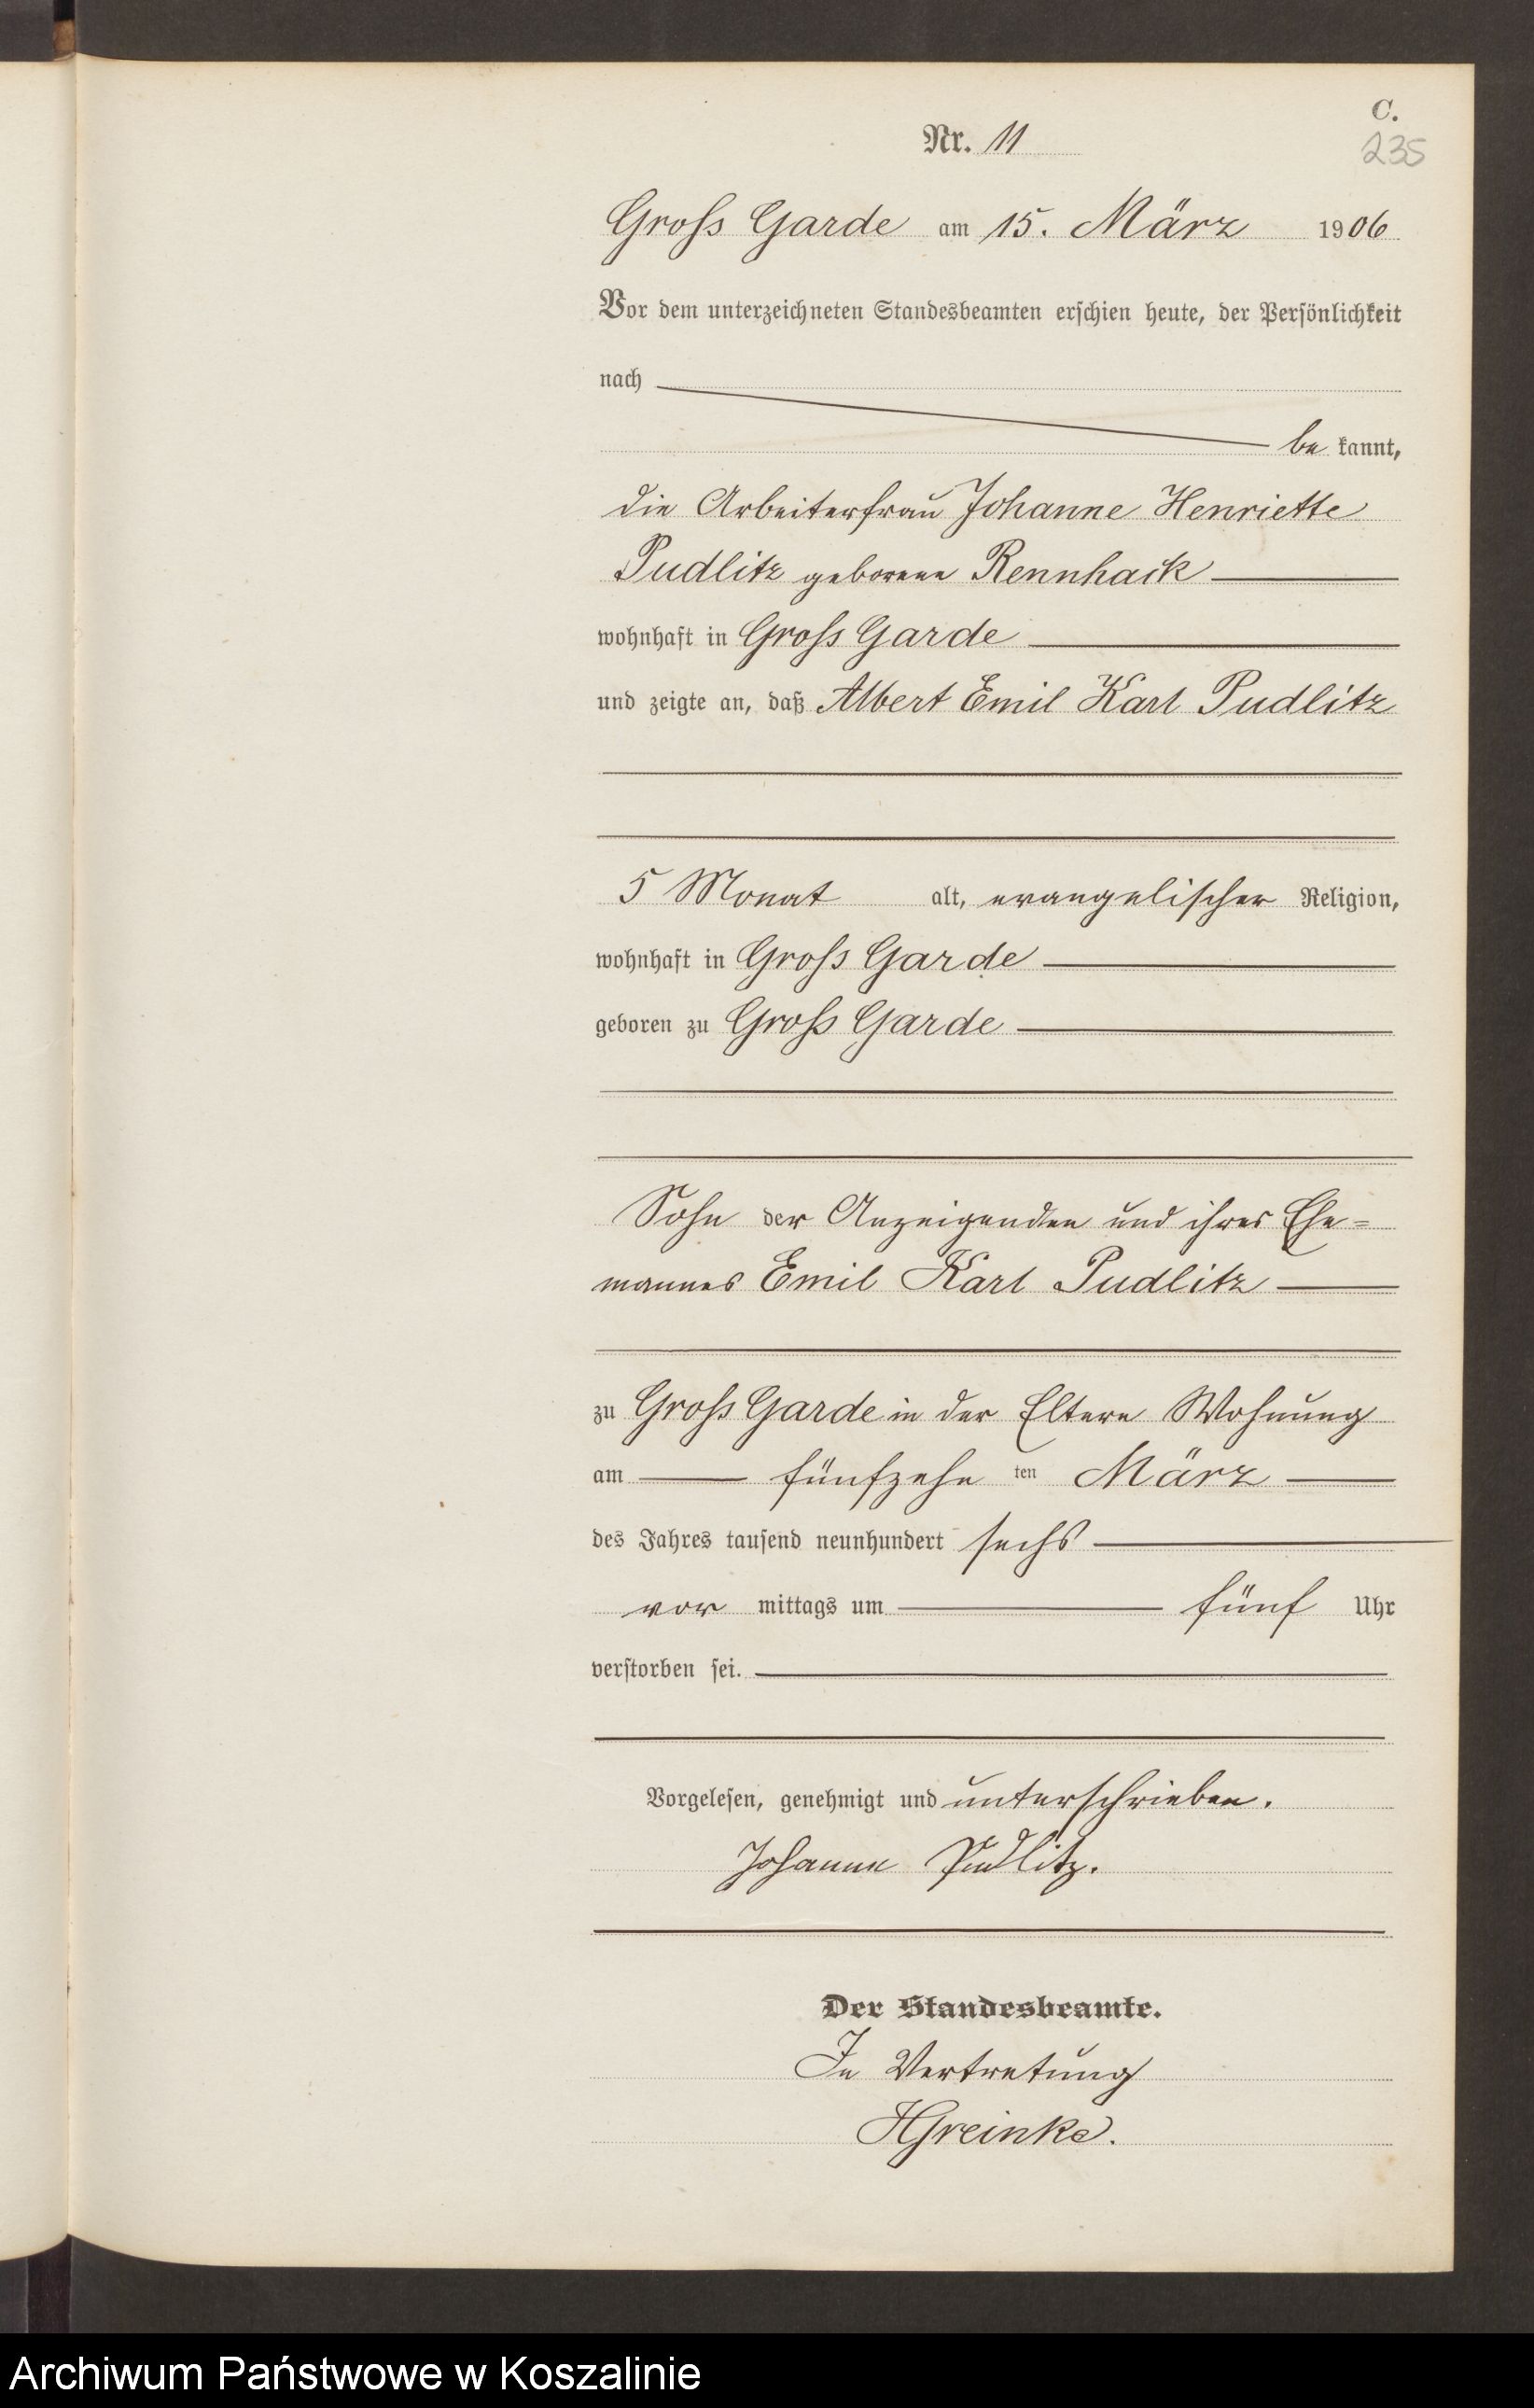 C.
Nr. 11
235
Gross Garde am 15. März 1906
Vor dem unterzeichneten Standesbeamten erschien heute, der Persönlichkeit
nach
be kannt,
die Arbeiterfrau Johanne Henriette
Pudlitz geborene Rennhack
wohnhaft in Gross Garde
und zeigte an, daß Albert Emil Karl Pudlitz
5 Monat alt, evangelischer Religion,
wohnhaft in Gross Garde
geboren zu Gross Garde
Sohn der Anzeigenden und ihres Ehe=
mannes Emil Karl Pudlitz
zu Gross Garde in der Eltern Wohnung
am fünfzehn ten März
des Jahres tausend neunhundert sechs
vor mittags um fünf Uhr
verstorben sei.
Vorgelesen, genehmigt und unterschrieben.
Johanne Pudlitz.
Der Standesbeamte.
In Vertretung
HGreinke.
Archiwum Państwowe w Koszalinie